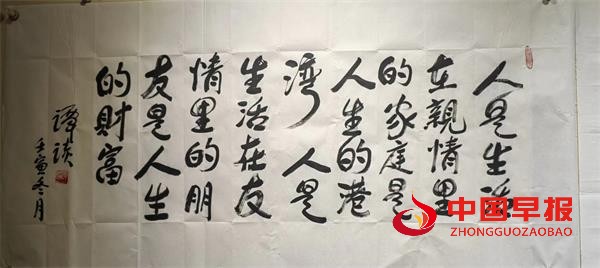 人是生活
在親情里
的家庭是
人生的港
湾 人是
生活在友
情里的朋
友是人生
的財富
譚談
壬寅冬月
中国早报
ZHONGGUOZAOBAO